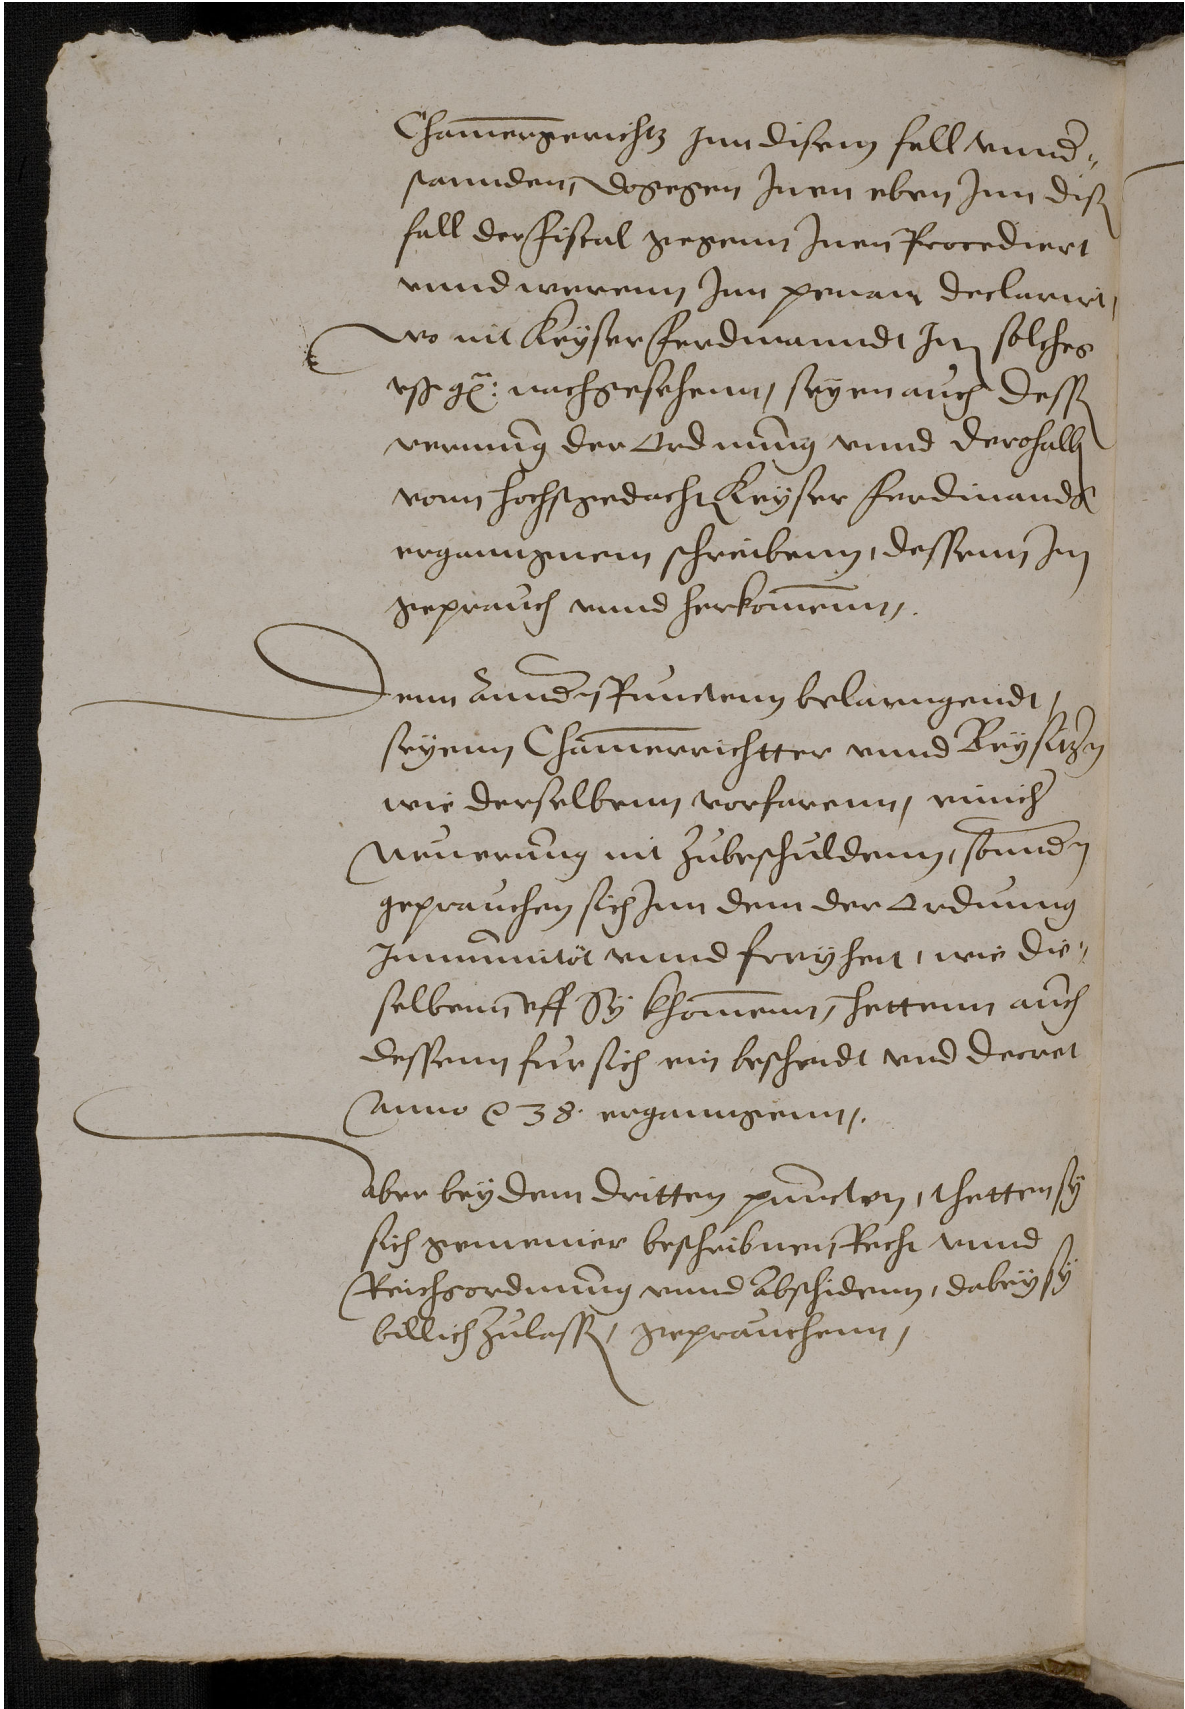 Chamergerichtz Jnn disem fall vnnder„
stannden, dogegen Jnen eben Jnn diß
fall der fiscal gegenn Jnen Procediert
vnnd werenn Jnn penam declarirt,
wo nit Keyser Ferdinanndt Jn solches
vß gn: nachgesehenn, seyen auch desß
vernung der Ordnung vnnd derohalb
vonn hochstgedacht Keyser Ferdinands
ergangnem schreibenn, dessenn Jn
geprauch vnnd herkomenn.
Denn Annder Punctenn belanngendt,
seyenn Chamerrichtter vnnd Beysitzer
wie derselbenn vorfarenn, einicher
Neuerung nit Zubeschuldenn, sonnder
geprauchen sich Jnn dem der Ordnung
Jmmunitöt vnnd freyheit, wie die„
selbenn vff Sy khomenn, hettenn auch
dessenn fur sich ein bescheidt vnd decret
Anno 38. ergangenn.
Aber bey dem dritten puncten, thetten sy
sich gemeiner beschribnen Recht vnnd
Reichsordnung vnnd Abschidenn, dabey sy
billich Zulassen, geprauchenn,